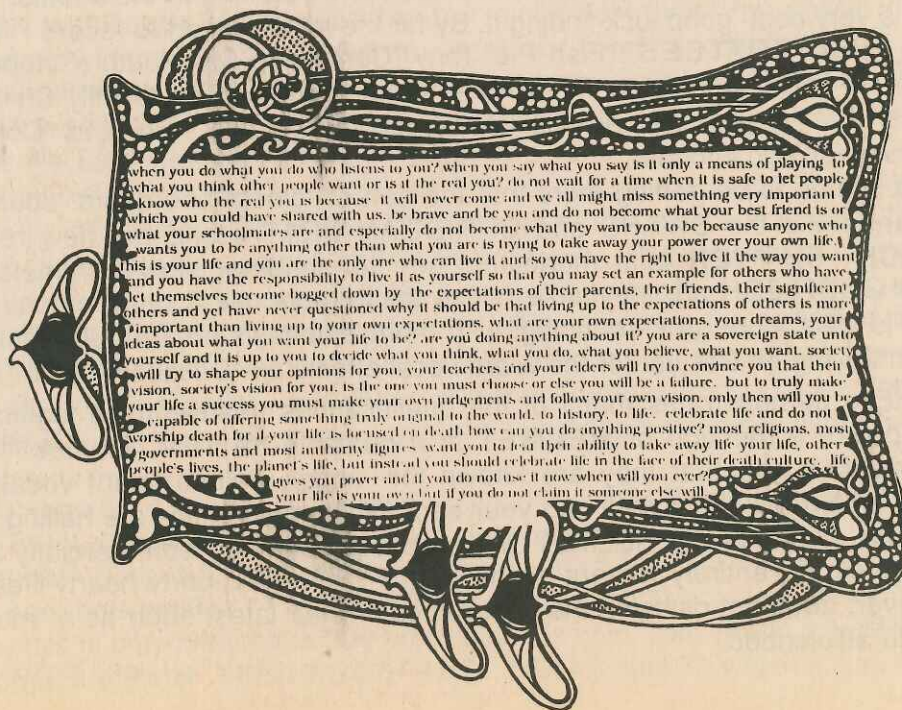 when you do what you do who listens to you? when you say what you say is it only a means of playing to
what you think other people want or is it the real you? do not wait for a time when it is safe to let people
know who the real you is because it will never come and we all might miss something very important
which you could have shared with us. be brave and be you and do not become what your best friend is or
what your schoolmates are and especially do not become what they want you to be because anyone who
wants you to be anything other than what you are is trying to take away your power over your own life.
this is your life and you are the only one who can live it and so you have the right to live it the way you want
and you have the responsibility to live it as yourself so that you may set an example for others who have
let themselves become bogged down by the expectations of their parents, their friends, their significant
others and yet have never questioned why it should be that living up to the expectations of others is more
important than living up to your own expectations. what are your own expectations, your dreams, your
ideas about what you want your life to be? are you doing anything about it? you are a sovereign state unto
yourself and it is up to you to decide what you think, what you do, what you believe, what you want. society
will try to shape your opinions for you, your teachers and your elders will try to convince you that their
vision, society's vision for you, is the one you must choose or else you will be a failure. but to truly make
your life a success you must make your own judgements and follow your own vision. only then will you be
capable of offering something truly original to the world, to history, to life. celebrate life and do not
worship death for if your life is focused on death how can you do anything positive? most religions, most
governments and most authority figures want you to fear their ability to take away life your life, other
people's lives, the planet's life, but instead you should celebrate life in the face of their death culture. life
gives you power and if you do not use it now when will you ever?
your life is your own but if you do not claim it someone else will.